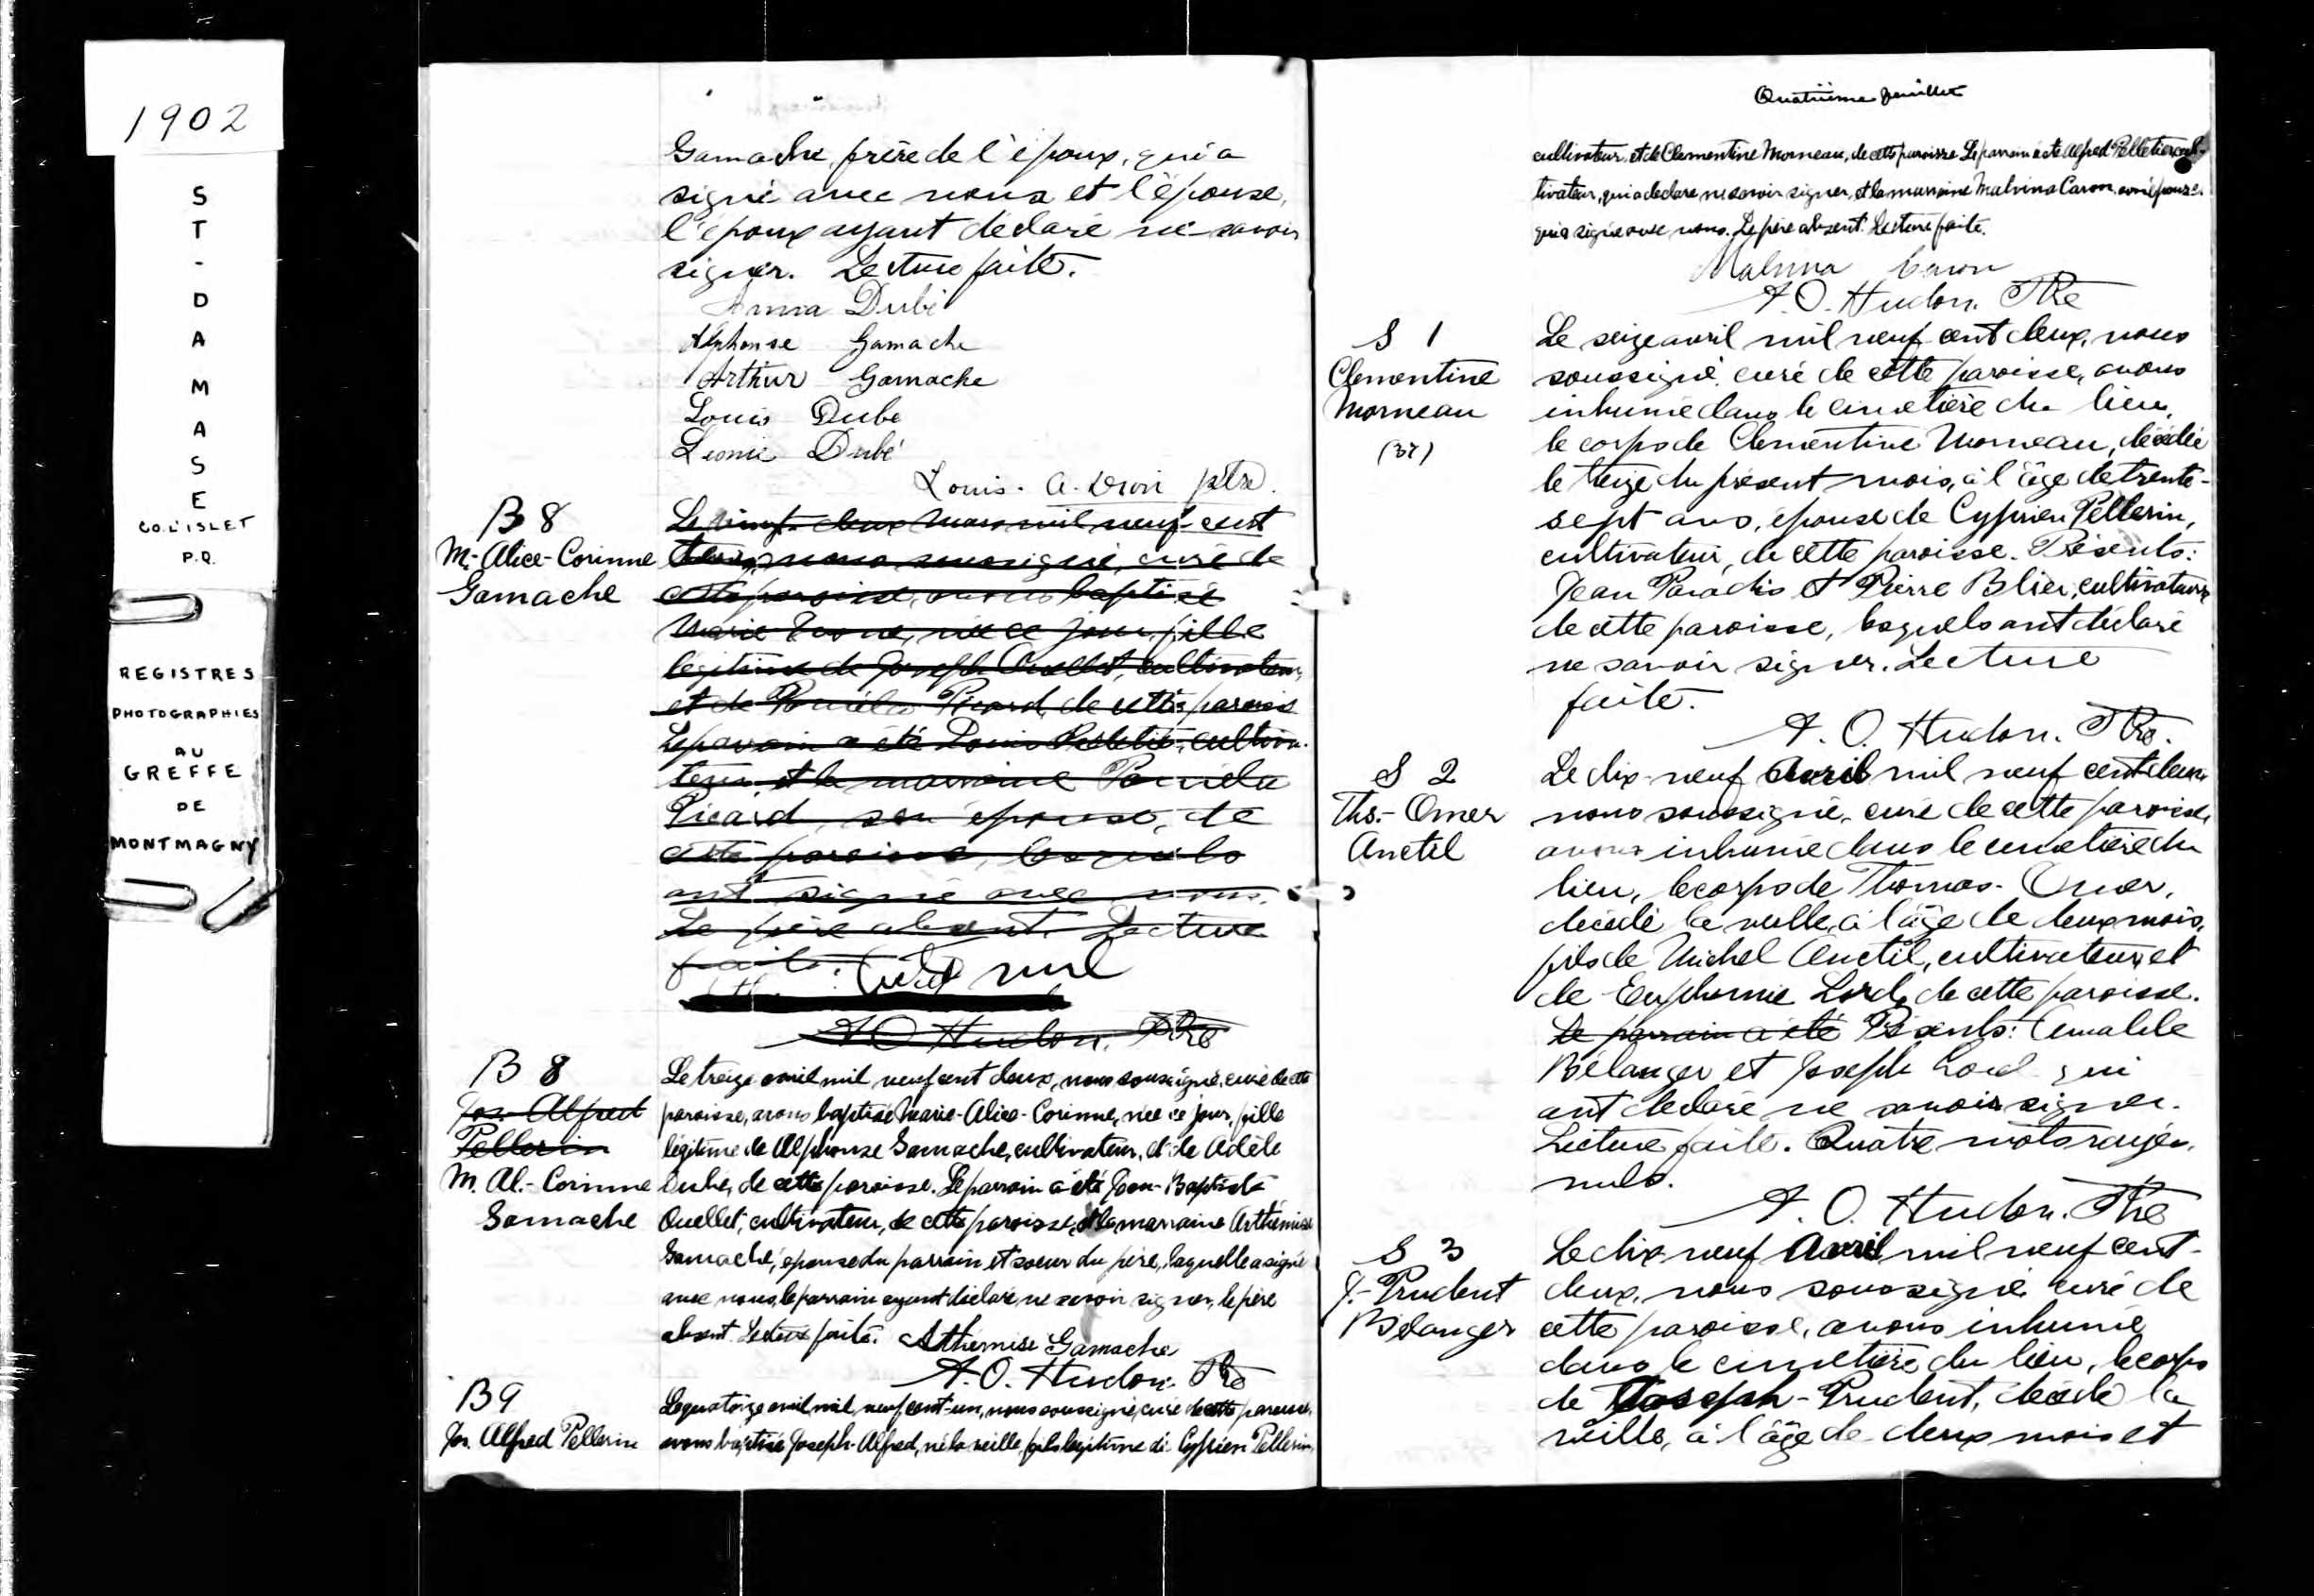 1902
ST-DAMASE
CO. L'ISLET
P.Q.
REGISTRES
PHOTOGRAPHIES
AU
GREFFE
DE
MONTMAGNY
Gamache, frère de l'époux, qui a
signé avec nous et l'épouse,
l'époux ayant déclaré ne savoir
signer. Lecture faite.
Anna Dubé
Alphonse Gamache
Arthur Gamache
Louis Dube
Leonie Dubé
Louis. A. Dion ptre.
B 8
M.-Alice-Corinne
Gamache
Le vingt-deux Mars mil neuf-cent
nous soussigné, curé de
cette paroisse, avons baptisé
Marie née ce jour, fille
légitime de Joseph Ouellet, cultivateur,
et de Picard, de cette paroisse
Le parrain a été Louis cultiva-
teur, et la marraine
Picard, son épouse, de
cette paroisse, lesquels
ont signé avec nous.
Le père absent. Lecture
faite. nul
A O Hudon. Ptre
B 8
Jos-Alfred
Pellerin
M. Al.-Corinne
Gamache
Le treize avril mil neuf cent deux, nous soussigné, curé de cette
paroisse, avons baptisé Marie-Alice-Corinne, née ce jour, fille
légitime de Alphonse Gamache, cultivateur, et de Adèle
Dubé, de cette paroisse. Le parrain a été Jean-Baptiste
Ouellet, cultivateur, de cette paroisse, et la marraine Arthémise
Gamache, épouse du parrain et soeur du père, laquelle a signé
avec nous, le parrain ayant déclaré ne savoir signer, le père
absent. Lecture faite. Athemise Gamache
A. O. Hudon. Ptre
B 9
Jos. Alfred Pellerin
Le quatorze avril mil neuf cent-un, nous soussigné, curé de cette paroisse,
avons baptisé Joseph-Alfred, né la veille, fils légitime de Cyprien Pellerin,
Quatrième feuillet
cultivateur, et de Clementine Morneau, de cette paroisse. Le parrain a été Alfred Pelletier, cul-
tivateur, qui a déclaré ne savoir signer, et la marraine Malvina Caron, son épouse.
qui a signé avec nous. Le père absent. Lecture faite.
Malvina Caron
A. O. Hudon. Ptre
S 1
Clementine
Morneau
(37)
Le seize avril mil neuf cent deux, nous
soussigné, curé de cette paroisse, avons
inhumé dans le cimetière du lieu,
le corps de Clementine Morneau, décédée
le treize du présent mois, à l'âge de trente-
sept ans, épouse de Cyprien Pellerin,
cultivateur, de cette paroisse. Présents:
Jean Paradis et Pierre Blier, cultivateurs
de cette paroisse, lesquels ont déclaré
ne savoir signer. Lecture
faite.
A. O. Hudon. Ptre.
S 2
Ths.-Omer
Anctil
Le dix-neuf Avril mil neuf cent deux
nous soussigné, curé de cette paroisse,
avons inhumé dans le cimetière du
lieu, le corps de Thomas-Omer,
décédé la veille, à l'âge de deux mois,
fils de Michel Anctil, cultivateur, et
de Euphemie Lord, de cette paroisse.
Le parrain a été Présents: Amable
Bélanger et Joseph Lord qui
ont déclaré ne savoir signer.
Lecture faite. Quatre mots rayés
nuls.
A. O. Hudon. Ptre
S 3
J.-Prudent
Bélanger
Le dix-neuf Avril mil neuf cent-
deux, nous soussigné, curé de
cette paroisse, avons inhumé
dans le cimetière du lieu, le corps
de Joseph-Prudent, décédé la
veille, à l'âge de deux mois et